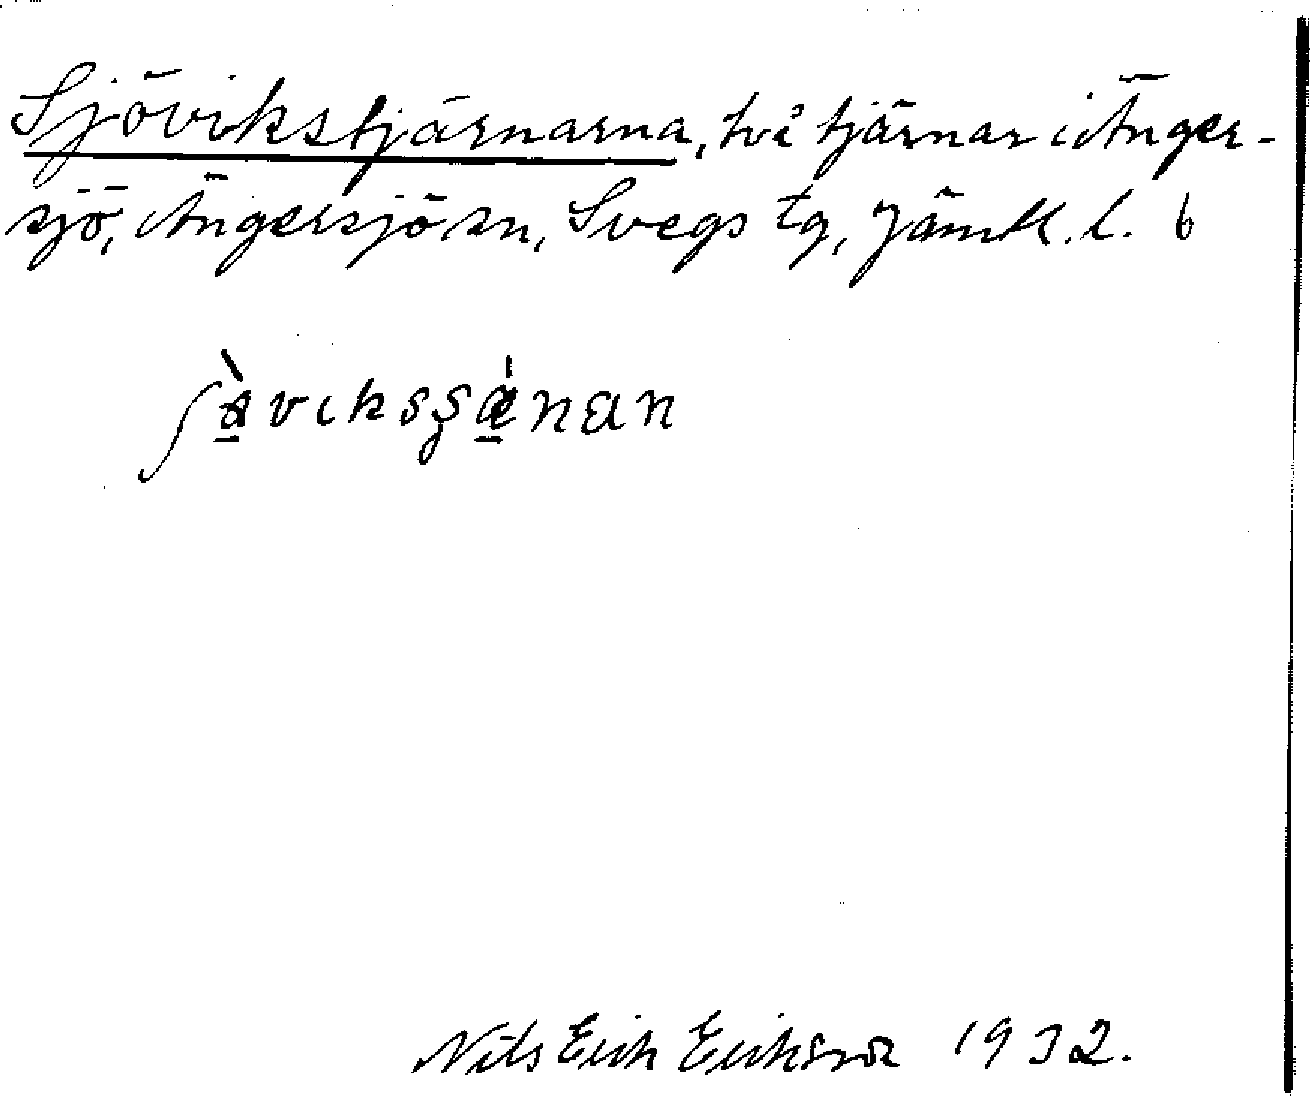 Sjövikstjärnarna, två tjärnar i Änger-
sjö, Ängersjö sn, Svegs tg, Jämtl. l. b
Nils Erik Eriksson 1932.